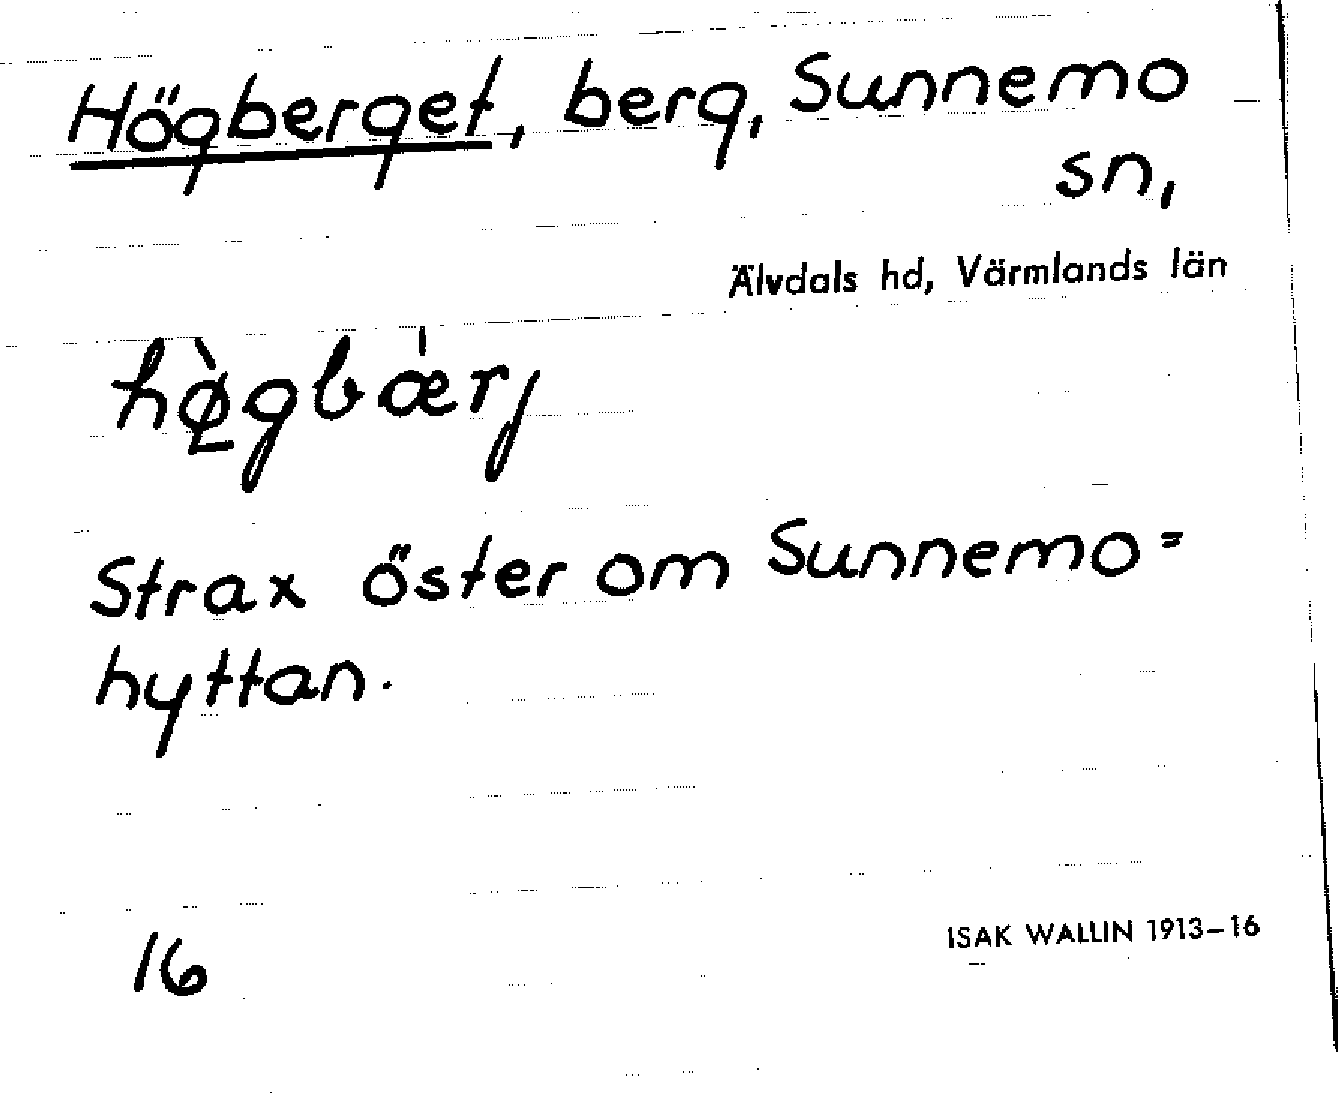 Högberget, berg, Sunnemo
sn,
Älvdals hd, Värmlands län
hø̀gbæ̍rj
Strax öster om Sunnemo=
hyttan.
16
ISAK WALLIN 1913–16